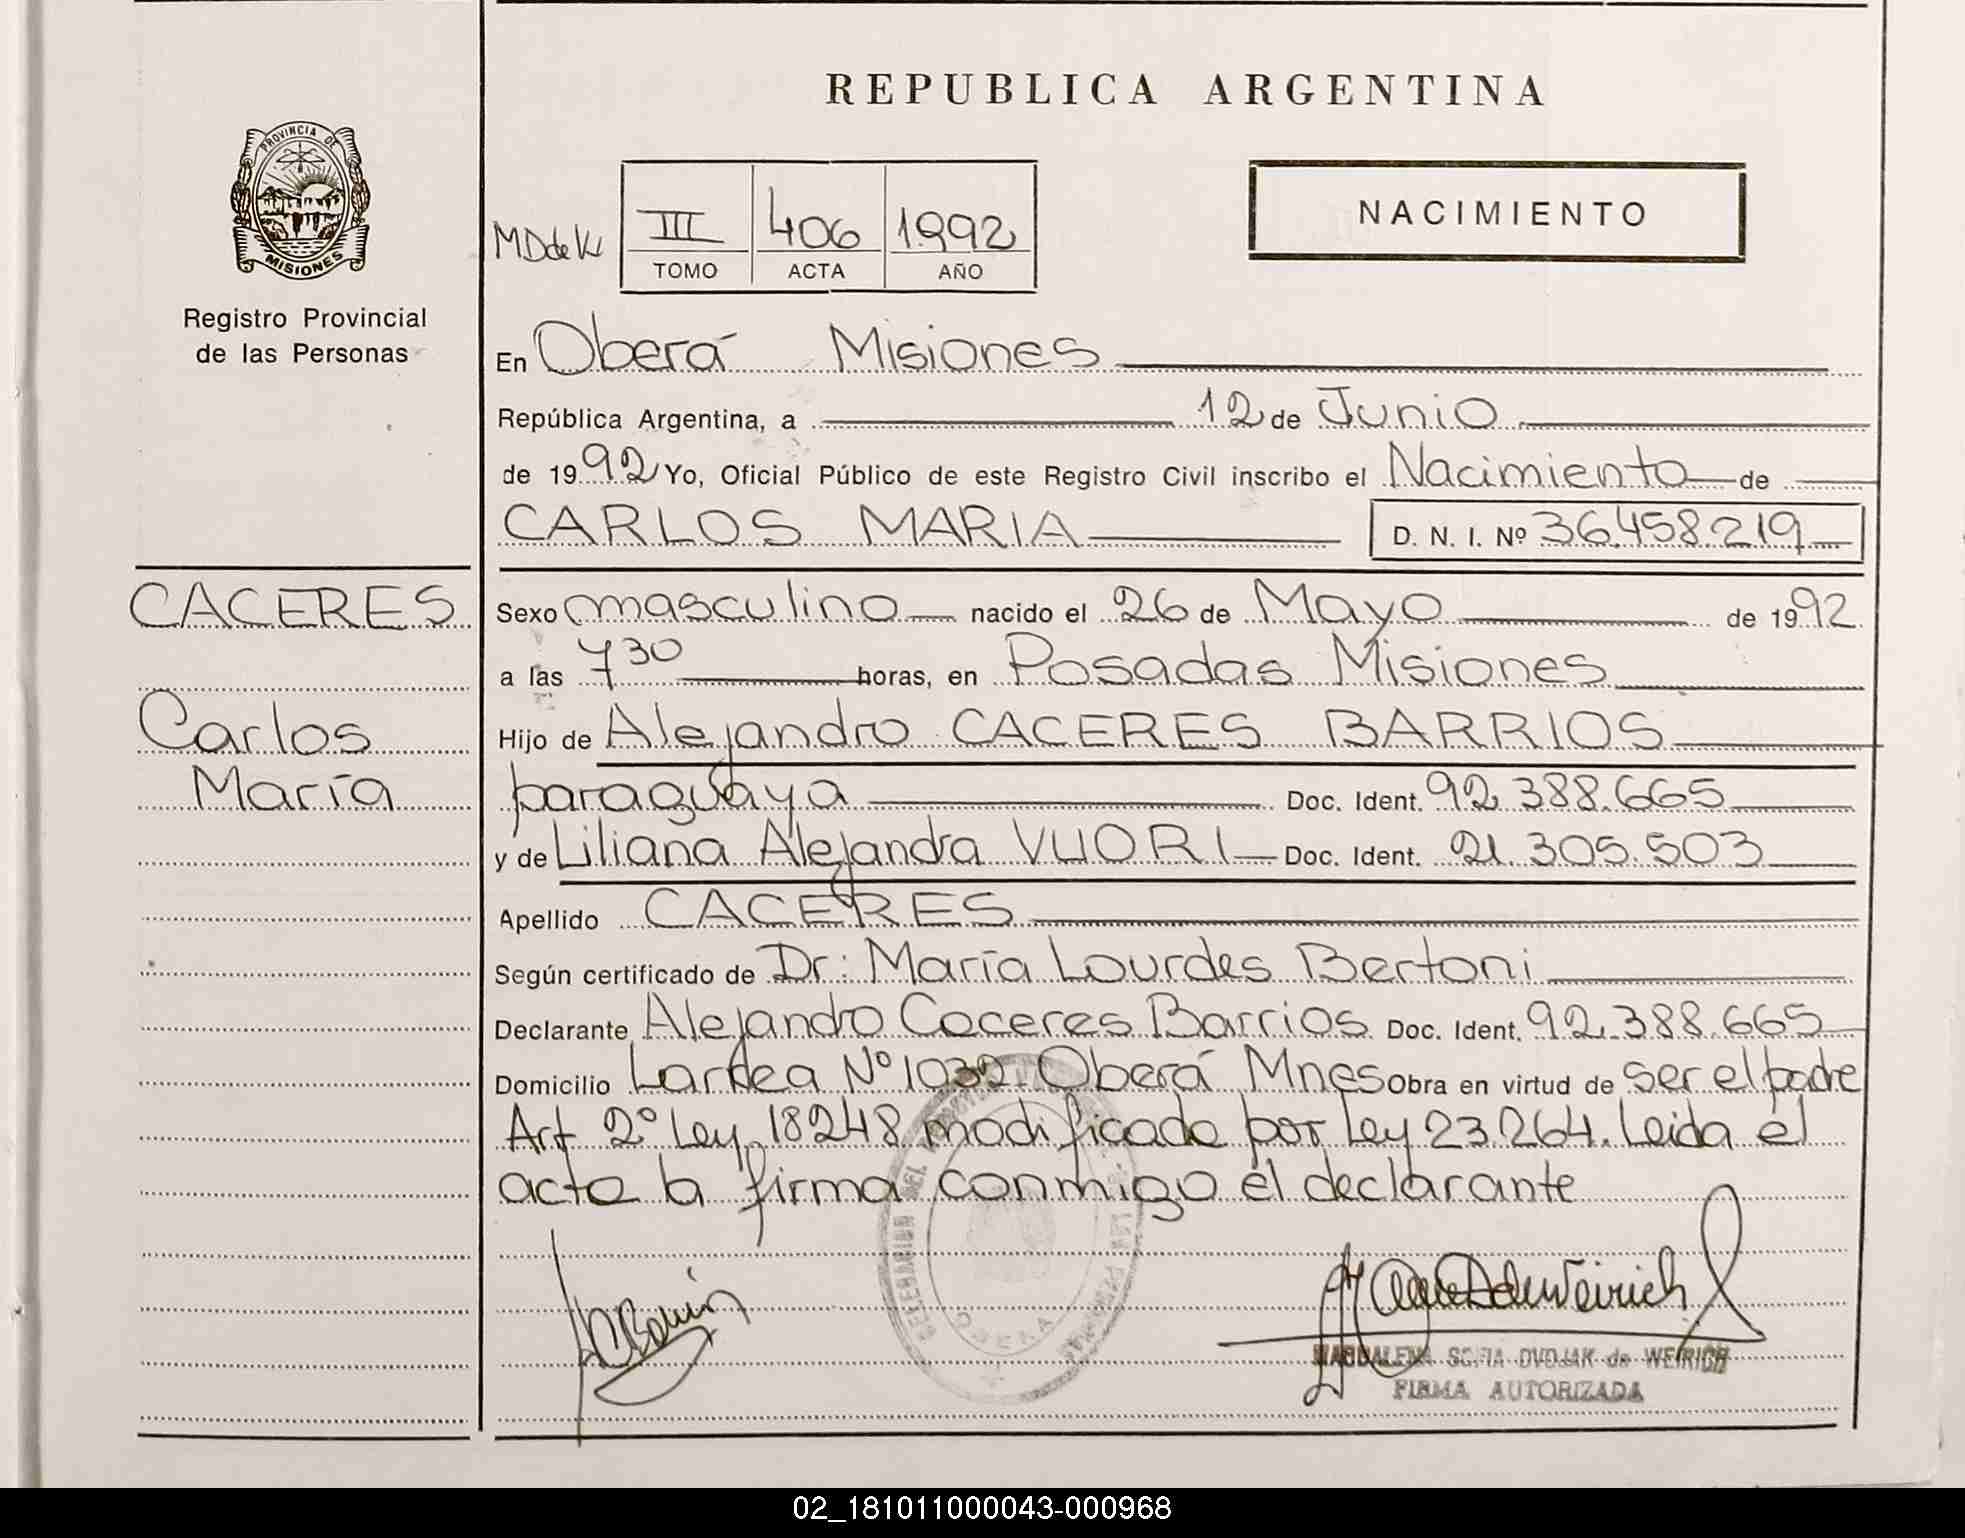 REPUBLICA ARGENTINA
PROVINCIA DE
MISIONES
Registro Provincial
de las Personas
MDdeW
III 406 1992
TOMO ACTA AÑO
NACIMIENTO
En Oberá Misiones
República Argentina, a 12 de Junio
de 1992 Yo, Oficial Público de este Registro Civil inscribo el Nacimiento de
CARLOS MARIA D. N. I. Nº 36.458.219
CACERES
Carlos
María
Sexo masculino nacido el 26 de Mayo de 1992
a las 7 30 horas, en Posadas Misiones
Hijo de Alejandro CACERES BARRIOS
paraguaya Doc. Ident. 92.388.665
y de Liliana Alejandra VUORI Doc. Ident. 21.305.503
Apellido CACERES
Según certificado de Dr: María Lourdes Bertoni
Declarante Alejandro Caceres Barrios Doc. Ident. 92.388.665
Domicilio Larrea Nº 1032 Oberá Mnes Obra en virtud de ser el padre
Art 2º Ley 18248 modificado por Ley 23.264. Leida el
acta la firma conmigo el declarante
OBERA
MAGDALENA SOFIA DVOJAK de WEIRICH
FIRMA AUTORIZADA
02_181011000043-000968